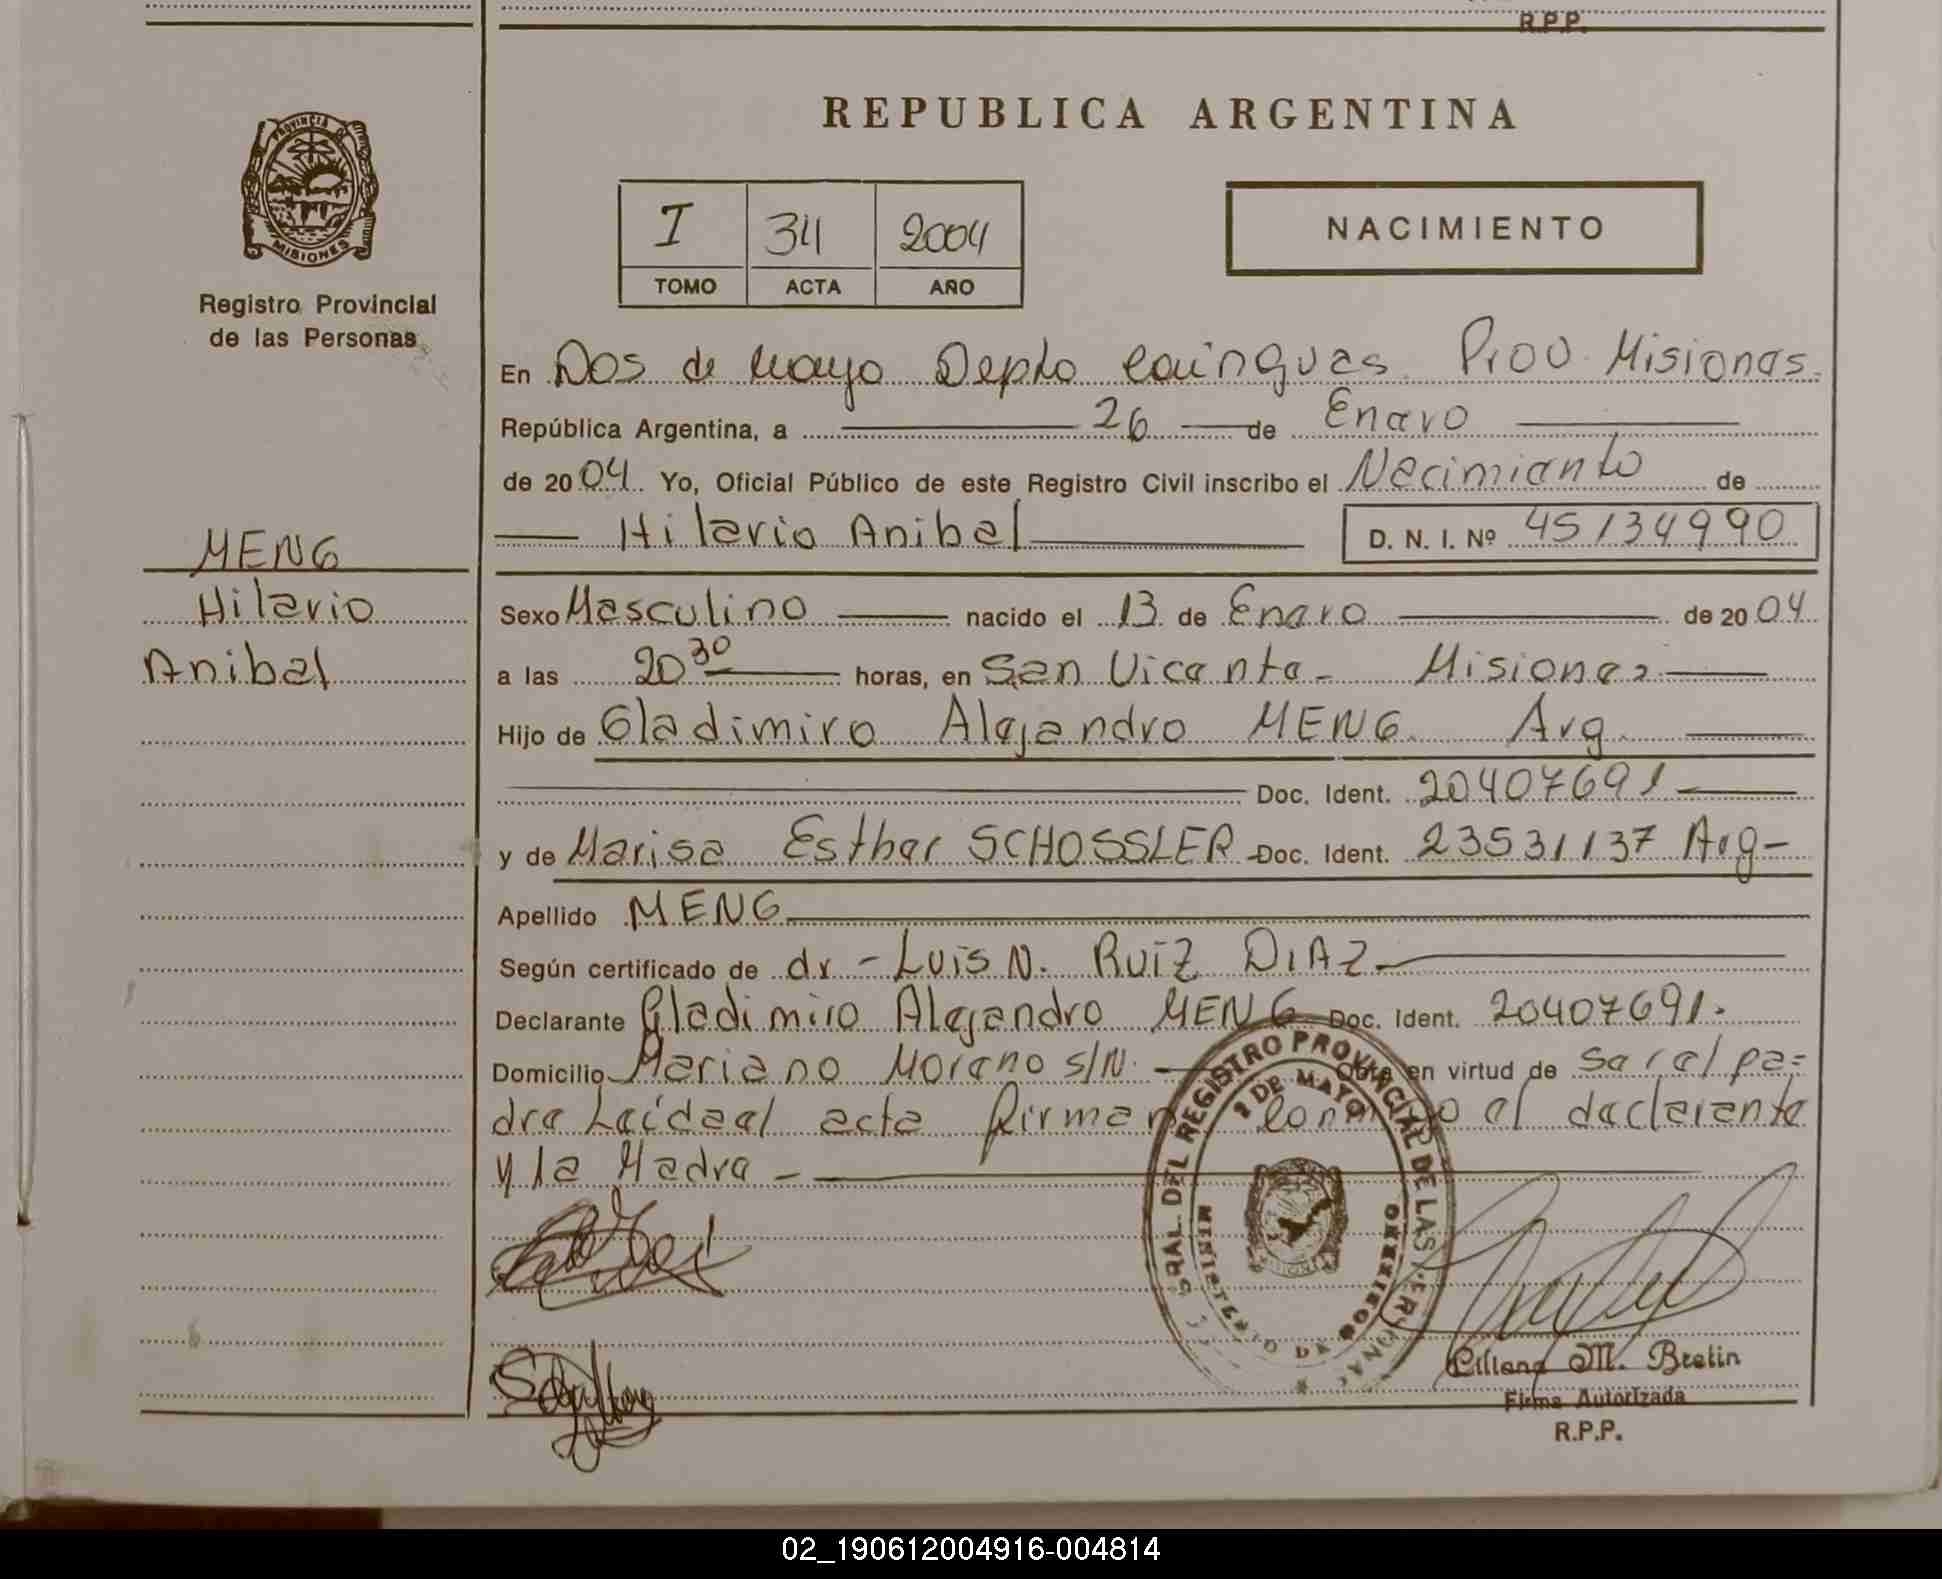 R.P.P.
REPUBLICA ARGENTINA
PROVINCIA DE
MISIONES
Registro Provincial
de las Personas
I 34 2004
TOMO ACTA AÑO
NACIMIENTO
En Dos de Mayo Depto Cainguas Prov. Misiones.
República Argentina, a 26 de Enero
de 2004. Yo, Oficial Público de este Registro Civil inscribo el Nacimiento de
Hilario Anibal D. N. I. Nº 45134990
MENG
Hilario
Anibal
Sexo Masculino nacido el 13 de Enero de 2004
a las 20 30 horas, en San Vicente - Misiones
Hijo de Gladimiro Alejandro MENG Arg
Doc. Ident. 20407691
y de Marisa Esther SCHOSSLER - Doc. Ident. 23531137 Arg -
Apellido MENG
Según certificado de dr - Luis N. RUIZ DIAZ
Declarante Gladimiro Alejandro MENG Doc. Ident. 20407691.
Domicilio Mariano Moreno S/N. - Obra en virtud de ser el pa=
dre Leída el acta firman conmigo el declarante
y la Madre -
REGISTRO PROVINCIAL DE LAS PERSONAS
2 DE MAYO
MINISTERIO DE GOBIERNO
Liliana M. Bretin
Firma Autorizada
R.P.P.
02_190612004916-004814